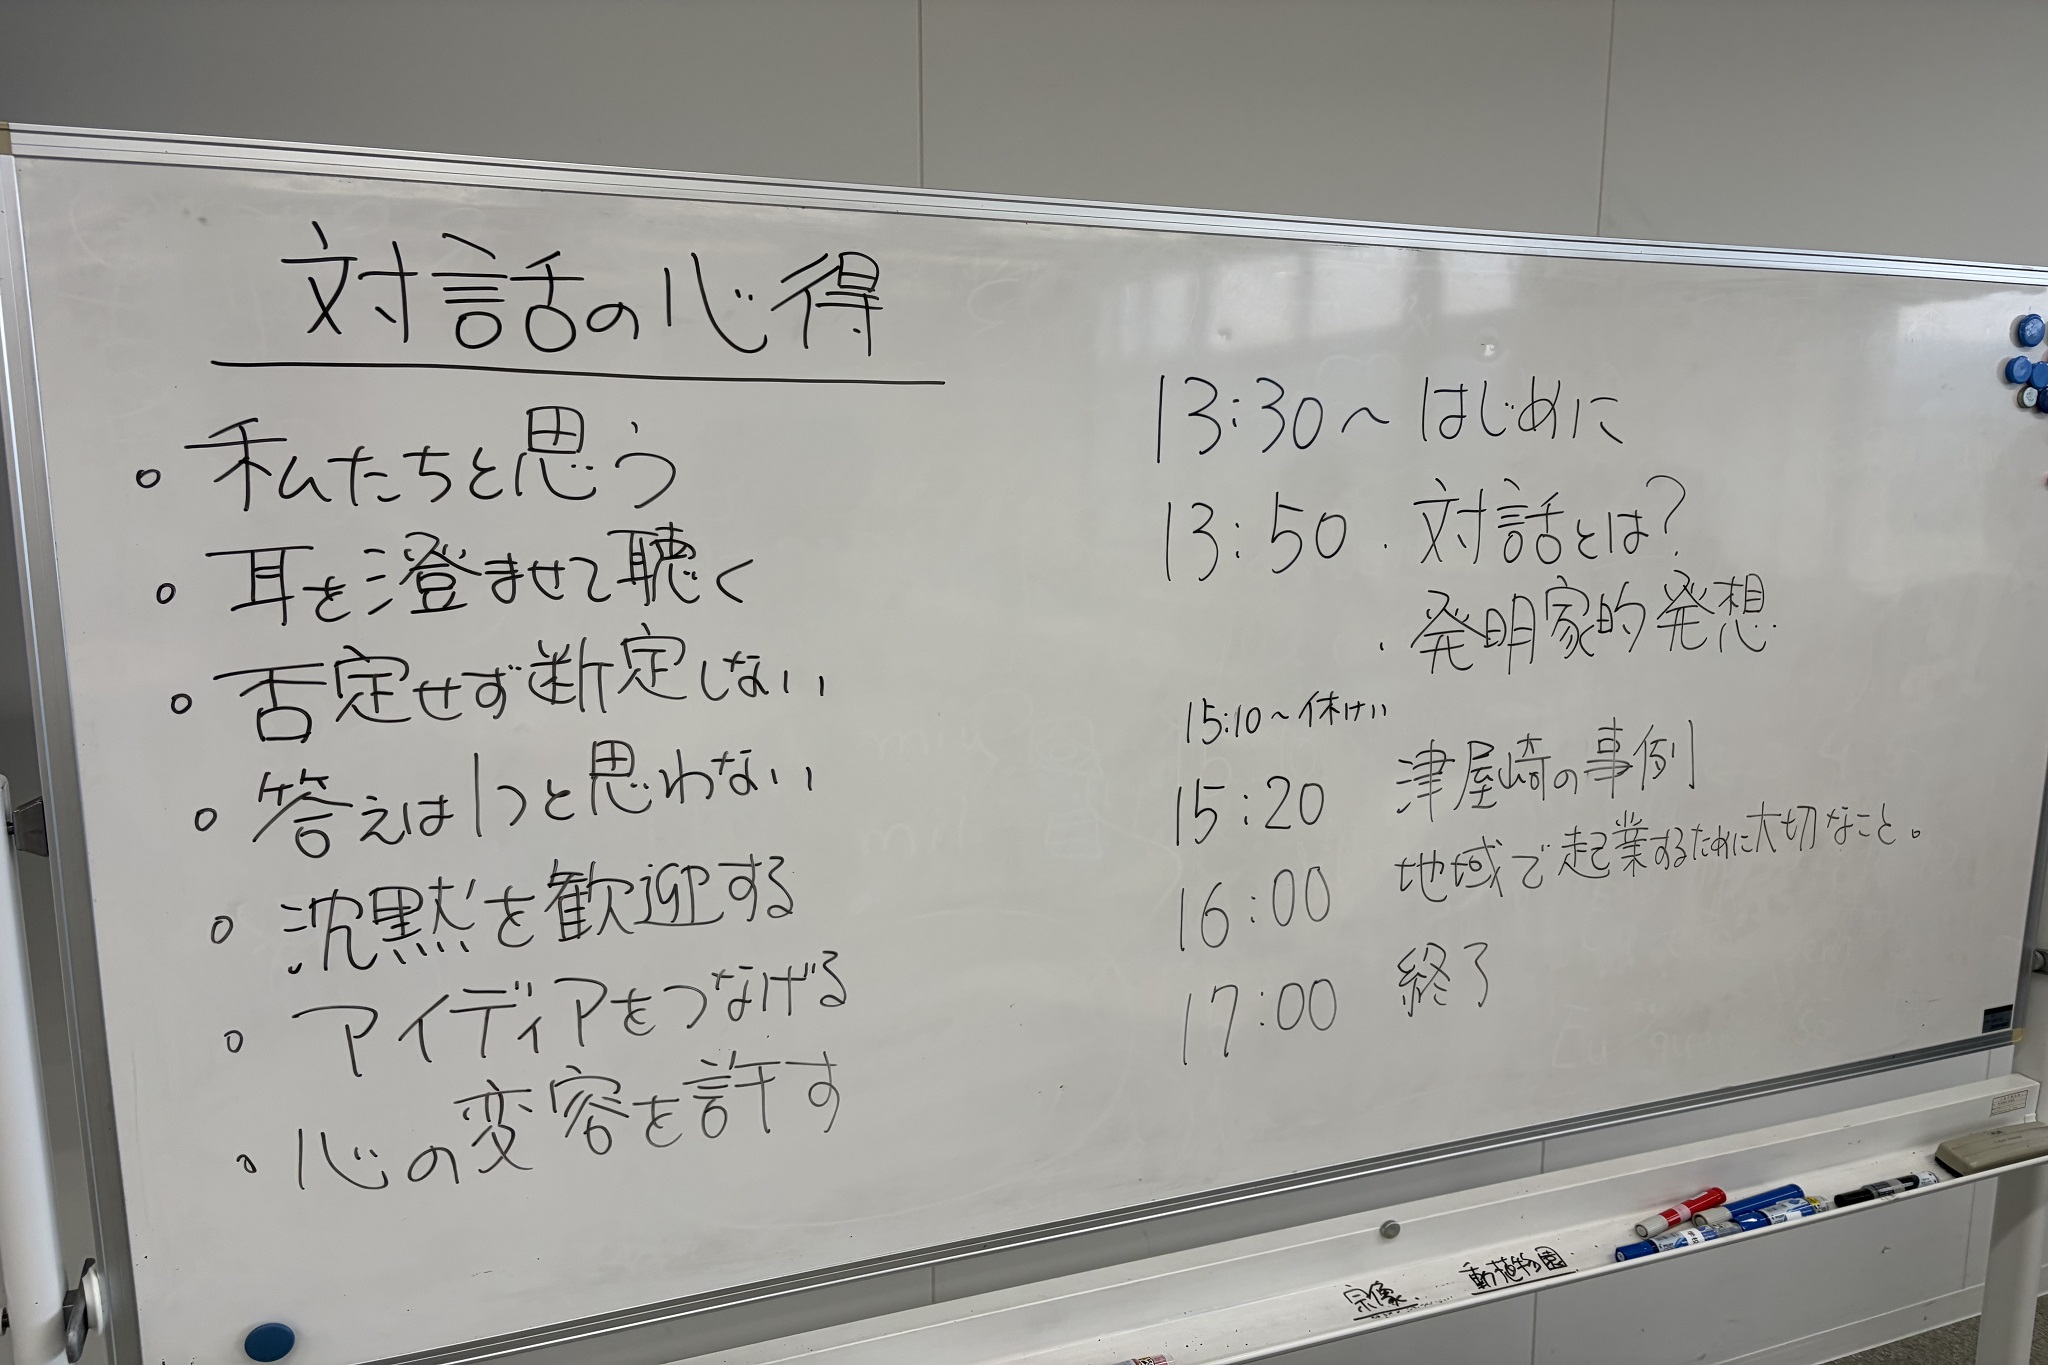 対話の心得
。私たちと思う
。耳を澄ませて聴く
。否定せず断定しない
。答えは1つと思わない
。沈黙を歓迎する
。アイディアをつなげる
。心の変容を許す
13:30〜 はじめに
13:50 ・対話とは?
・発明家的発想
15:10〜休けい
15:20 津屋崎の事例
16:00 地域で起業するために大切なこと。
17:00 終了
宗像 動植物園